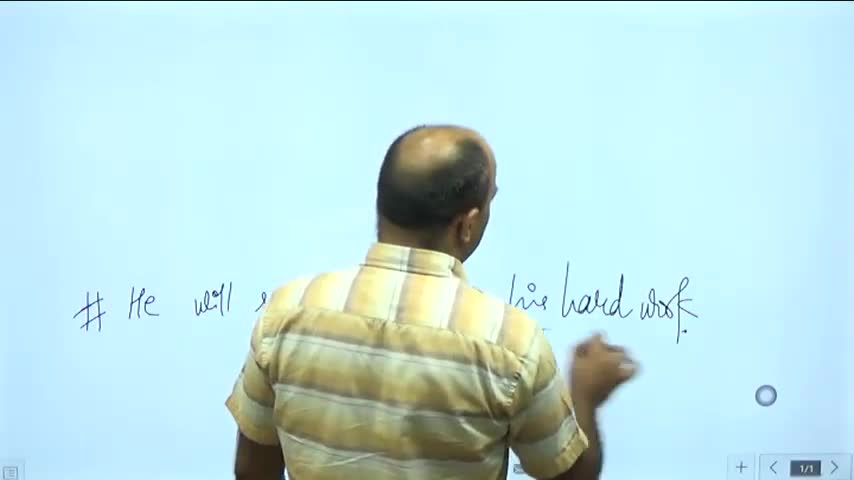 # He will his hard work.
1/1